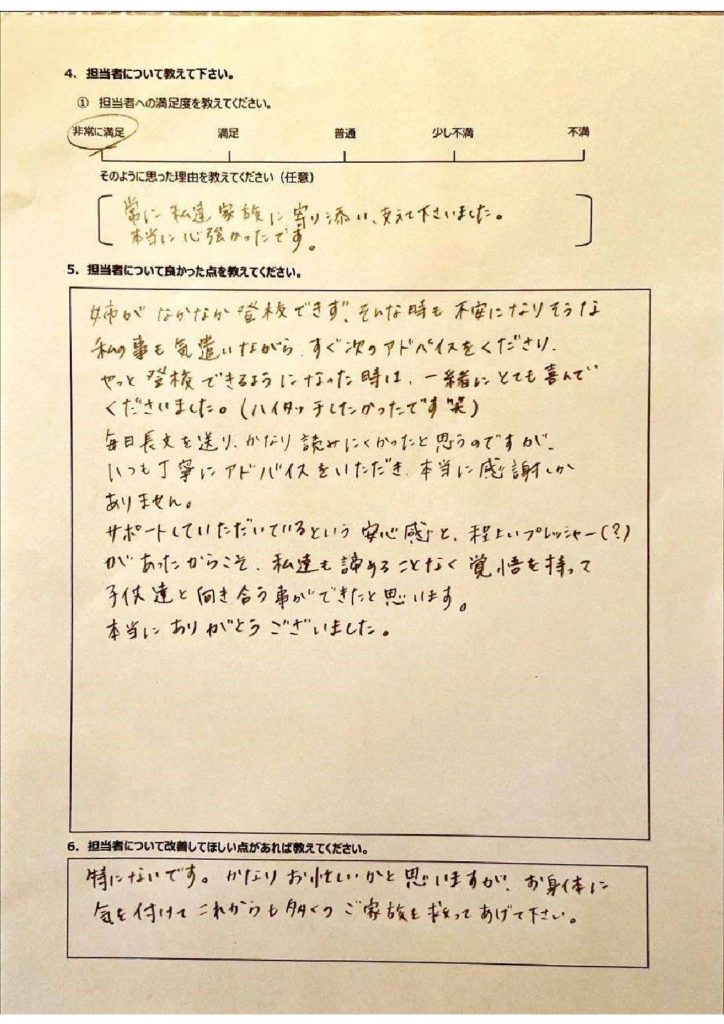 4. 担当者について教えて下さい。
① 担当者への満足度を教えてください。
非常に満足 満足 普通 少し不満 不満
そのように思った理由を教えてください（任意）
常に私達家族に寄り添い、支えて下さいました。
本当に心強かったです。
5. 担当者について良かった点を教えてください。
姉がなかなか登校できず、そんな時も不安になりそうな
私の事も気遣いながら、すぐ次のアドバイスをくださり、
やっと登校できるようになった時は、一緒にとても喜んで
くださいました。(ハイタッチしたかったです笑)
毎日長文を送り、かなり読みにくかったと思うのですが、
いつも丁寧にアドバイスをいただき、本当に感謝しか
ありません。
サポートしていただいているという安心感と、程よいプレッシャー(?)
があったからこそ、私達も諦めることなく覚悟を持って
子供達と向き合う事ができたと思います。
本当にありがとうございました。
6. 担当者について改善してほしい点があれば教えてください。
特にないです。かなりお忙しいかと思いますが、お身体に
気を付けてこれからも多くのご家族を救ってあげて下さい。